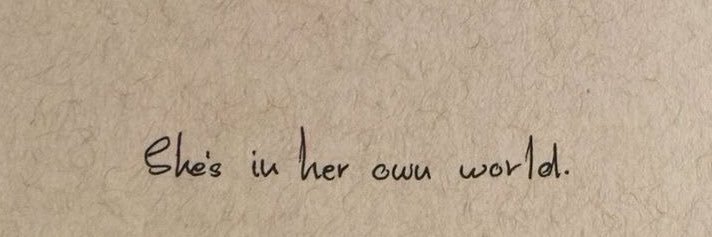 She's in her own world.